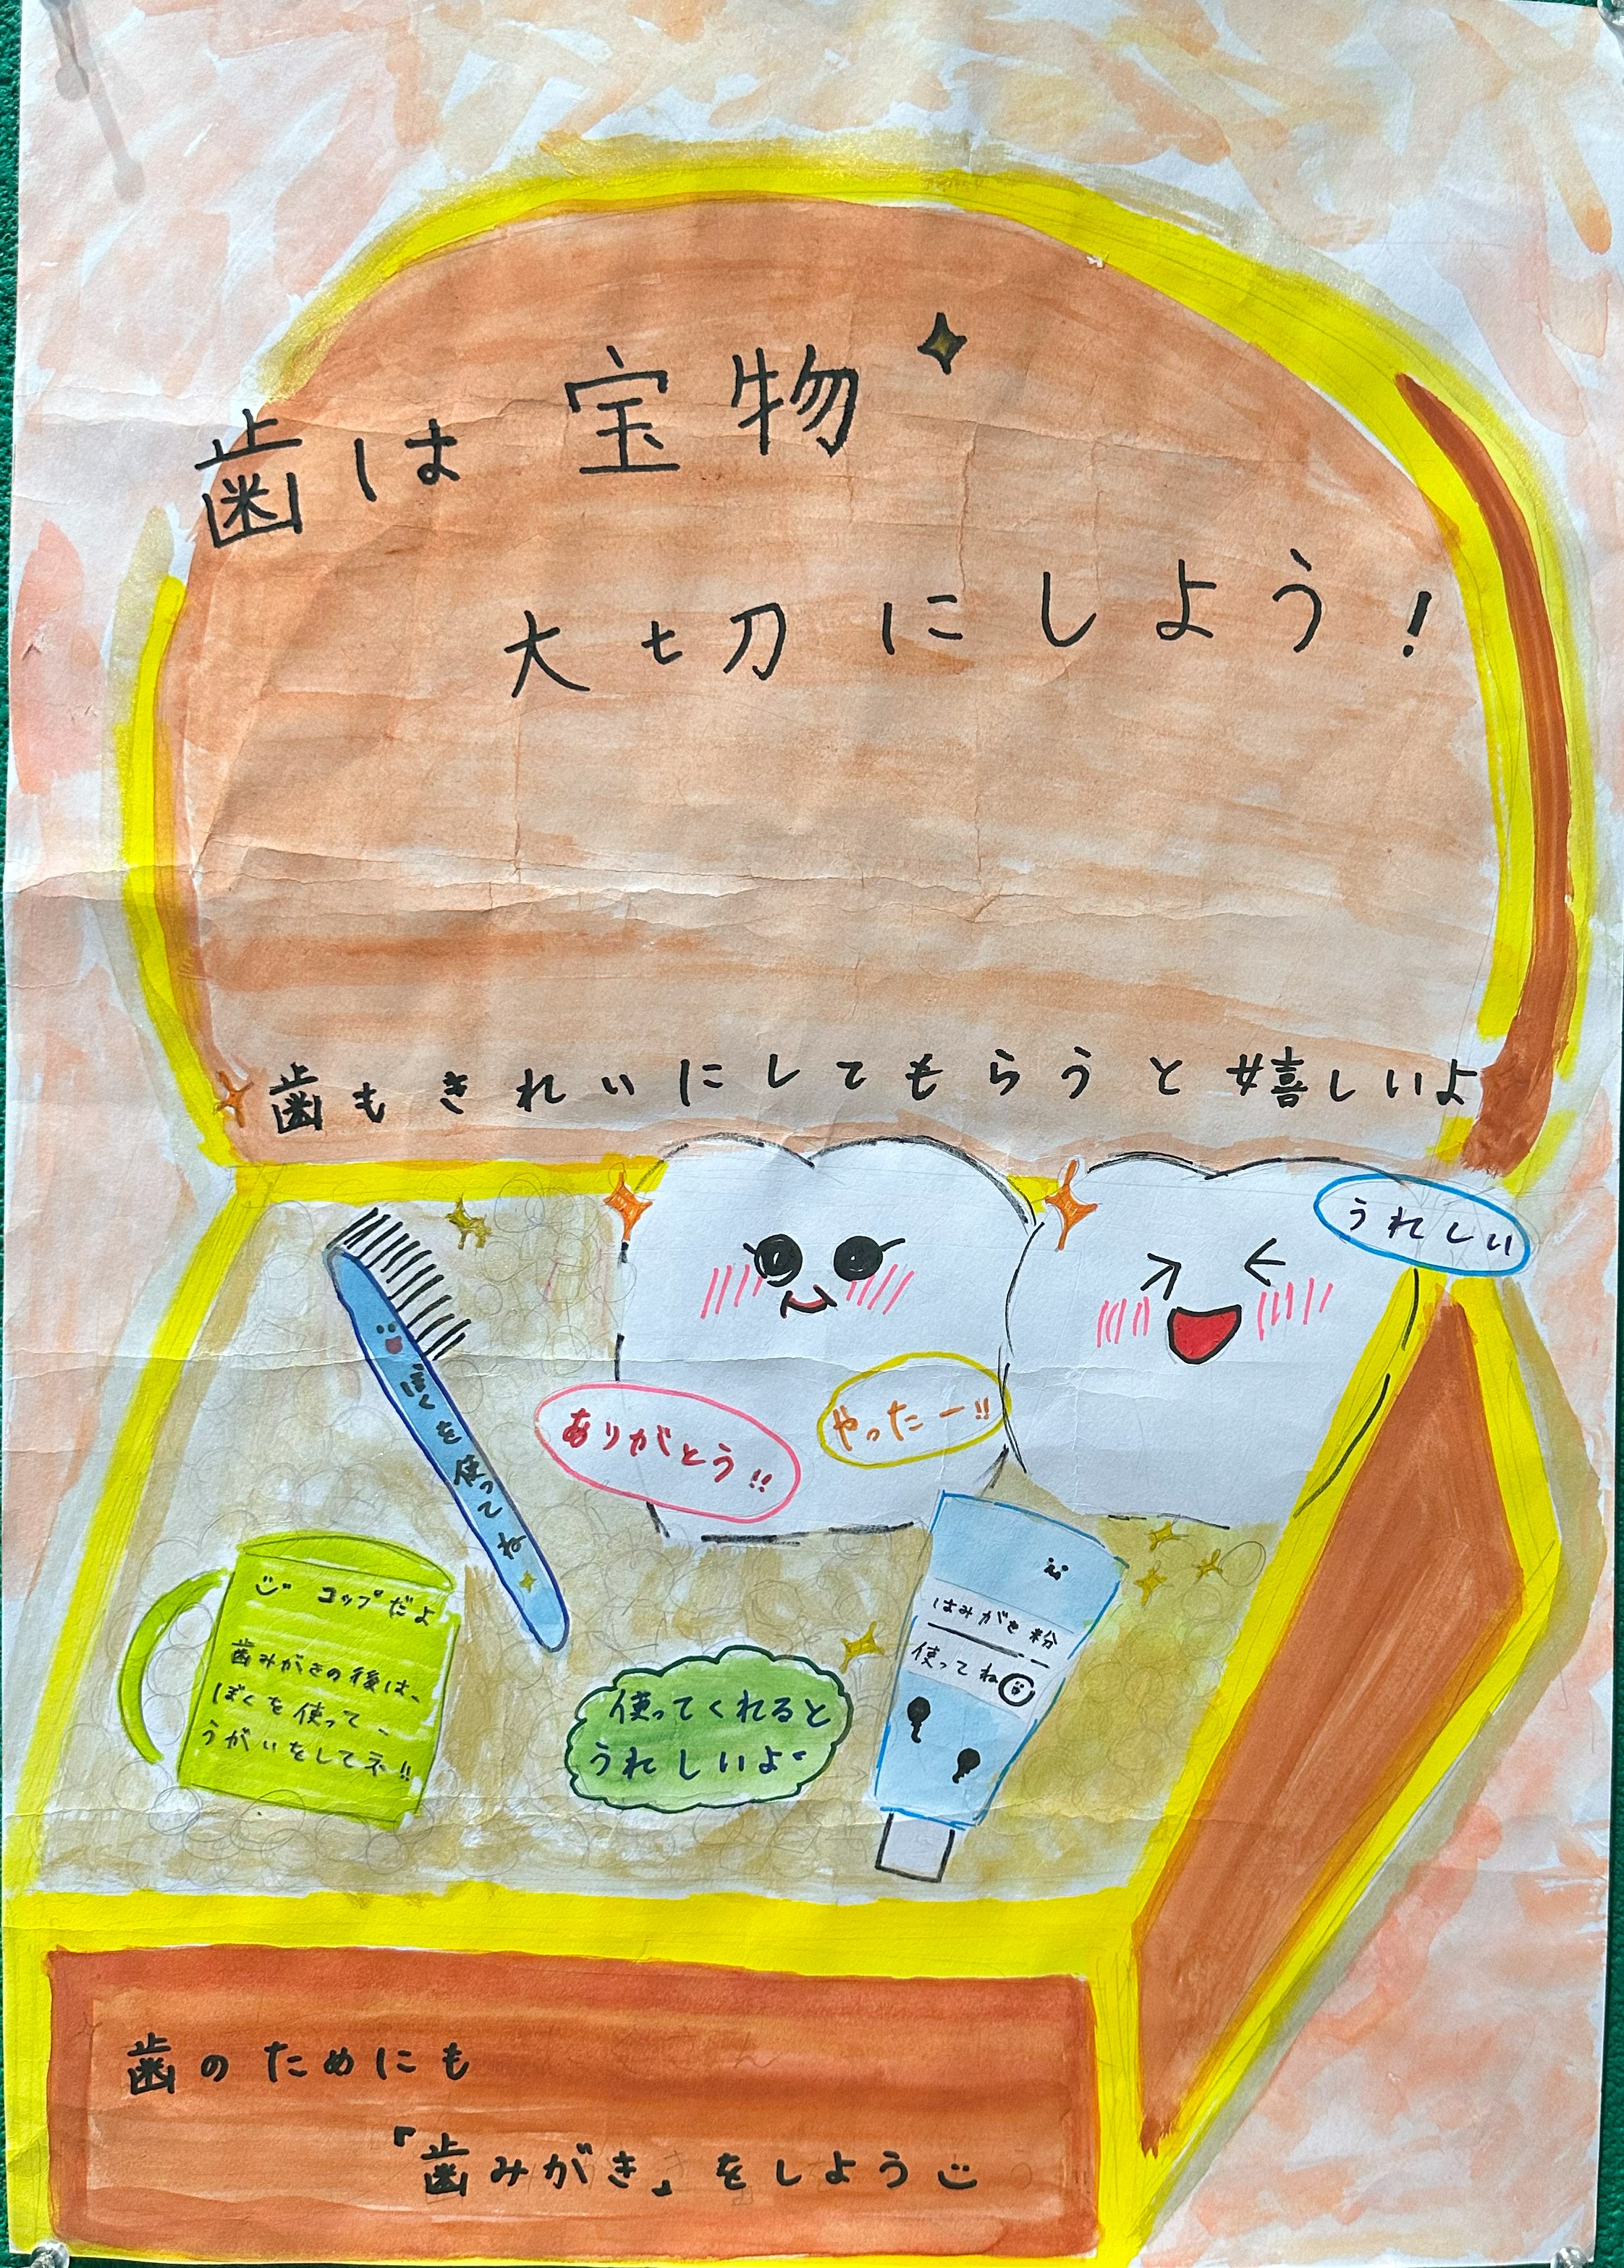 歯は宝物
大切にしよう!
歯もきれいにしてもらうと嬉しいよ
うれしい
ありがとう!!
やったー!!
ぼくを使ってね
コップだよ
歯みがきの後は、
ぼくを使って、
うがいをしてネ!!
はみがき粉
使ってね
使ってくれると
うれしいよー
歯のためにも
「歯みがき」をしよう